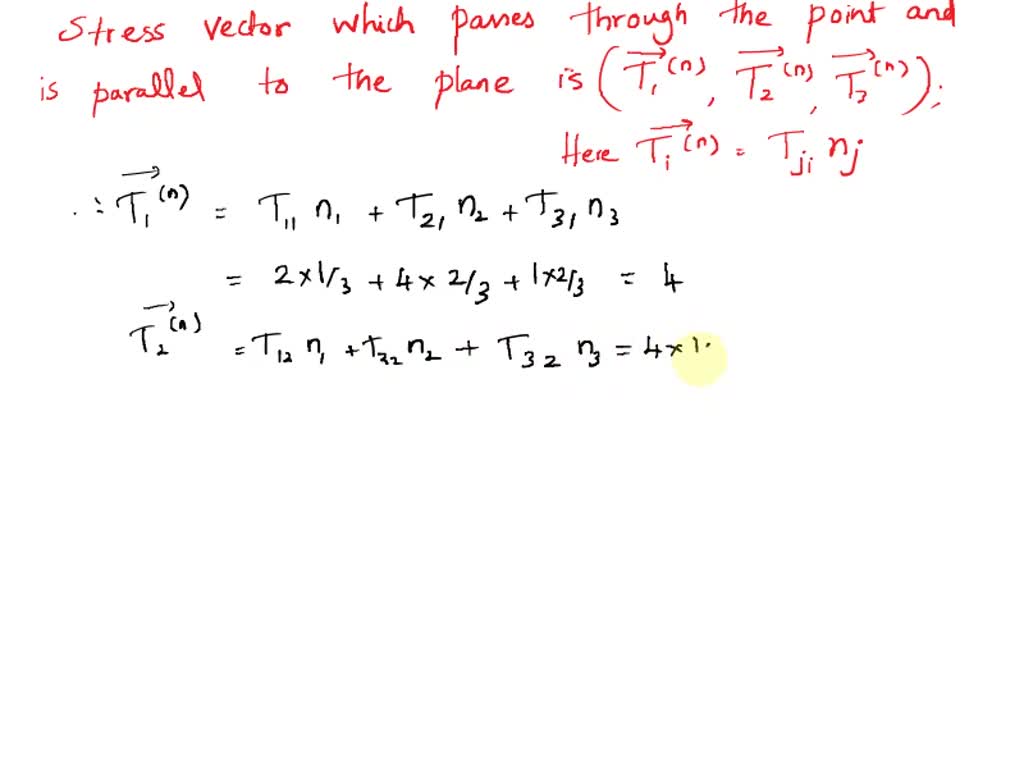 Stress vector which passes through the point and
is parallel to the plane is (T₁⁽ⁿ⁾, T₂⁽ⁿ⁾, T₃⁽ⁿ⁾);
Here Tᵢ⁽ⁿ⁾ = Tⱼᵢ nⱼ
∴ T₁⁽ⁿ⁾ = T₁₁ n₁ + T₂₁ n₂ + T₃₁ n₃
= 2×1/3 + 4×2/3 + 1×2/3 = 4
T₂⁽ⁿ⁾ = T₁₂ n₁ + T₂₂ n₂ + T₃₂ n₃ = 4×1